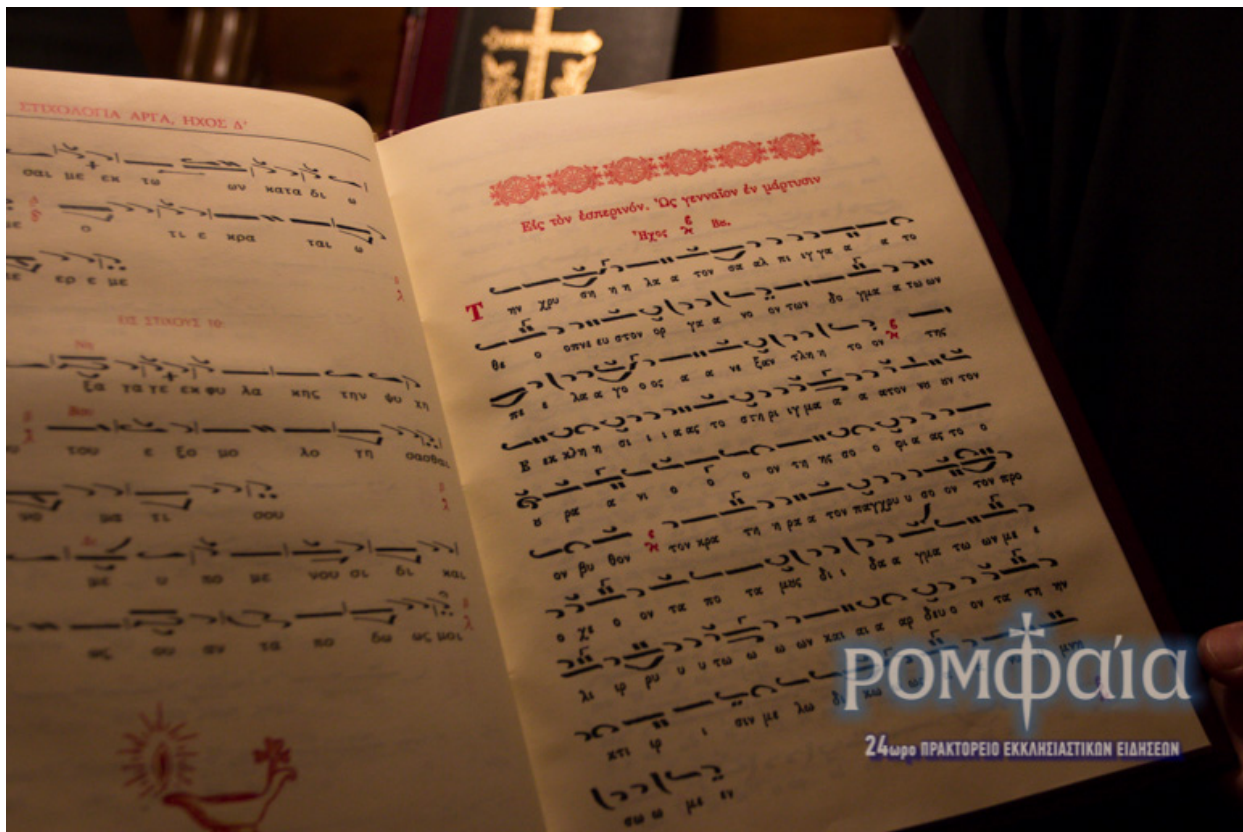 ΣΤΙΧΟΛΟΓΙΑ ΑΡΓΑ, ΗΧΟΣ Δ'
σαι με εκ τω ων κατα δι ω
ο τι ε κρα ται ω
ερ ε με
ΕΙΣ ΣΤΙΧΟΥΣ 10:
Νη
ξα γα γε εκ φυ λα κης την φυ χη
του ε ξο μο λο γη σασθαι
νο μα τι σου
με υ πο με νου σι δι και
ως ου αν τα πο δω ως μοι
Εἰς τὸν ἑσπερινόν. Ὡς γενναῖον ἐν μάρτυσιν
Ἦχος Βε.
Τ ην χρυ ση η η λα α τον σα αλ πι ιγ γα α α το
θε ο οπνε ευ στον ορ γα α νο ον των δο ο γμα α τω ων
πε ε λα α γο ο ος α α νε ξαν τλη η το ον της
ε εκ κλη η σι ι ι ας το στη ρι ιγ μα α α α ατον νο υν τον
ου ρα α νι ο ο ο ον τη ης σο ο φι α ας το ο
ον βυ θον τον κρα τη η ρα α τον παγχρυ υ σο ον τον προ
ο χε ο ον τα πο τα μους δι ι δα α γμα τω ων με ε
λι ιρ ρυ υ υ τω ω ω ων και αι α αρ δευ ο ον τα τη ην
κτι ι ι σιν με λω
σω ω με εν
ΡΟΜΦΑίΑ
24ωρο ΠΡΑΚΤΟΡΕΙΟ ΕΚΚΛΗΣΙΑΣΤΙΚΩΝ ΕΙΔΗΣΕΩΝ